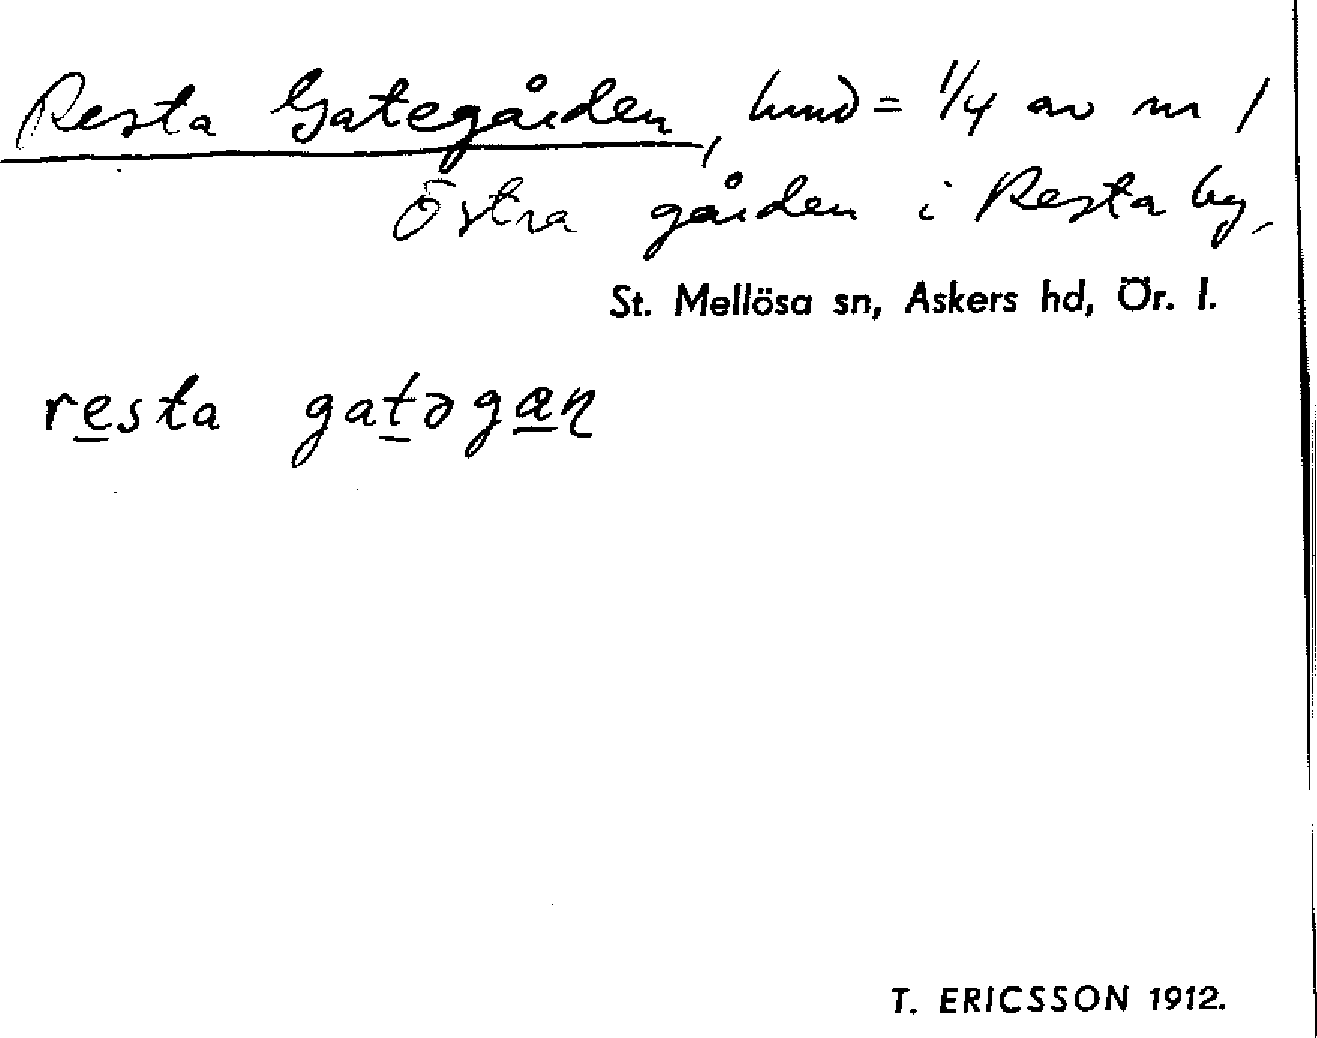 Resta Gategården, hmd = 1/4 av nr 1
Östra gården i Resta by.
St. Mellösa sn, Askers hd, Ör. l.
resta gatəgaɳ
T. ERICSSON 1912.